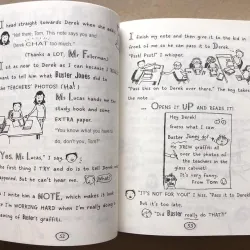 I head straight towards Derek when she asks
"Not there, Tom. This note says you and
Derek CHAT too much."
(Thanks a LOT, Mr. Fullerman!)
I sit as near to Derek as I can because I
want to tell him what Buster Jones did to
the TEACHERS' PHOTOS! (Ha!)
Ms Lucas hands me the
study book and some
EXTRA paper.
"You know what you need to
do, don't you, Tom?"
"Yes, Ms Lucas," I say
The first thing I try and do is to tell Derek
but he can't hear me.
(What?)
So I write him a NOTE, which makes it look
like I'm WORKING HARD when I'm really doing a
drawing of Buster's graffiti.
52
I finish my note and then give it to the kid in
front of me so he can pass it to Derek.
"Psst! Psst!" I whisper.
"Pass this on to Derek over there." The boy takes
the note
OPENS it UP AND READS IT!
Hey Derek!
Guess what I saw
Buster Jones do!
He DREW graffiti all
over the photos of
the teachers in the
glass cabinet!
It's very funny.
From Tom
"IT'S NOT FOR YOU!" I tell him.
But it's too late.
"Did BUSTER really do THAT?"
53